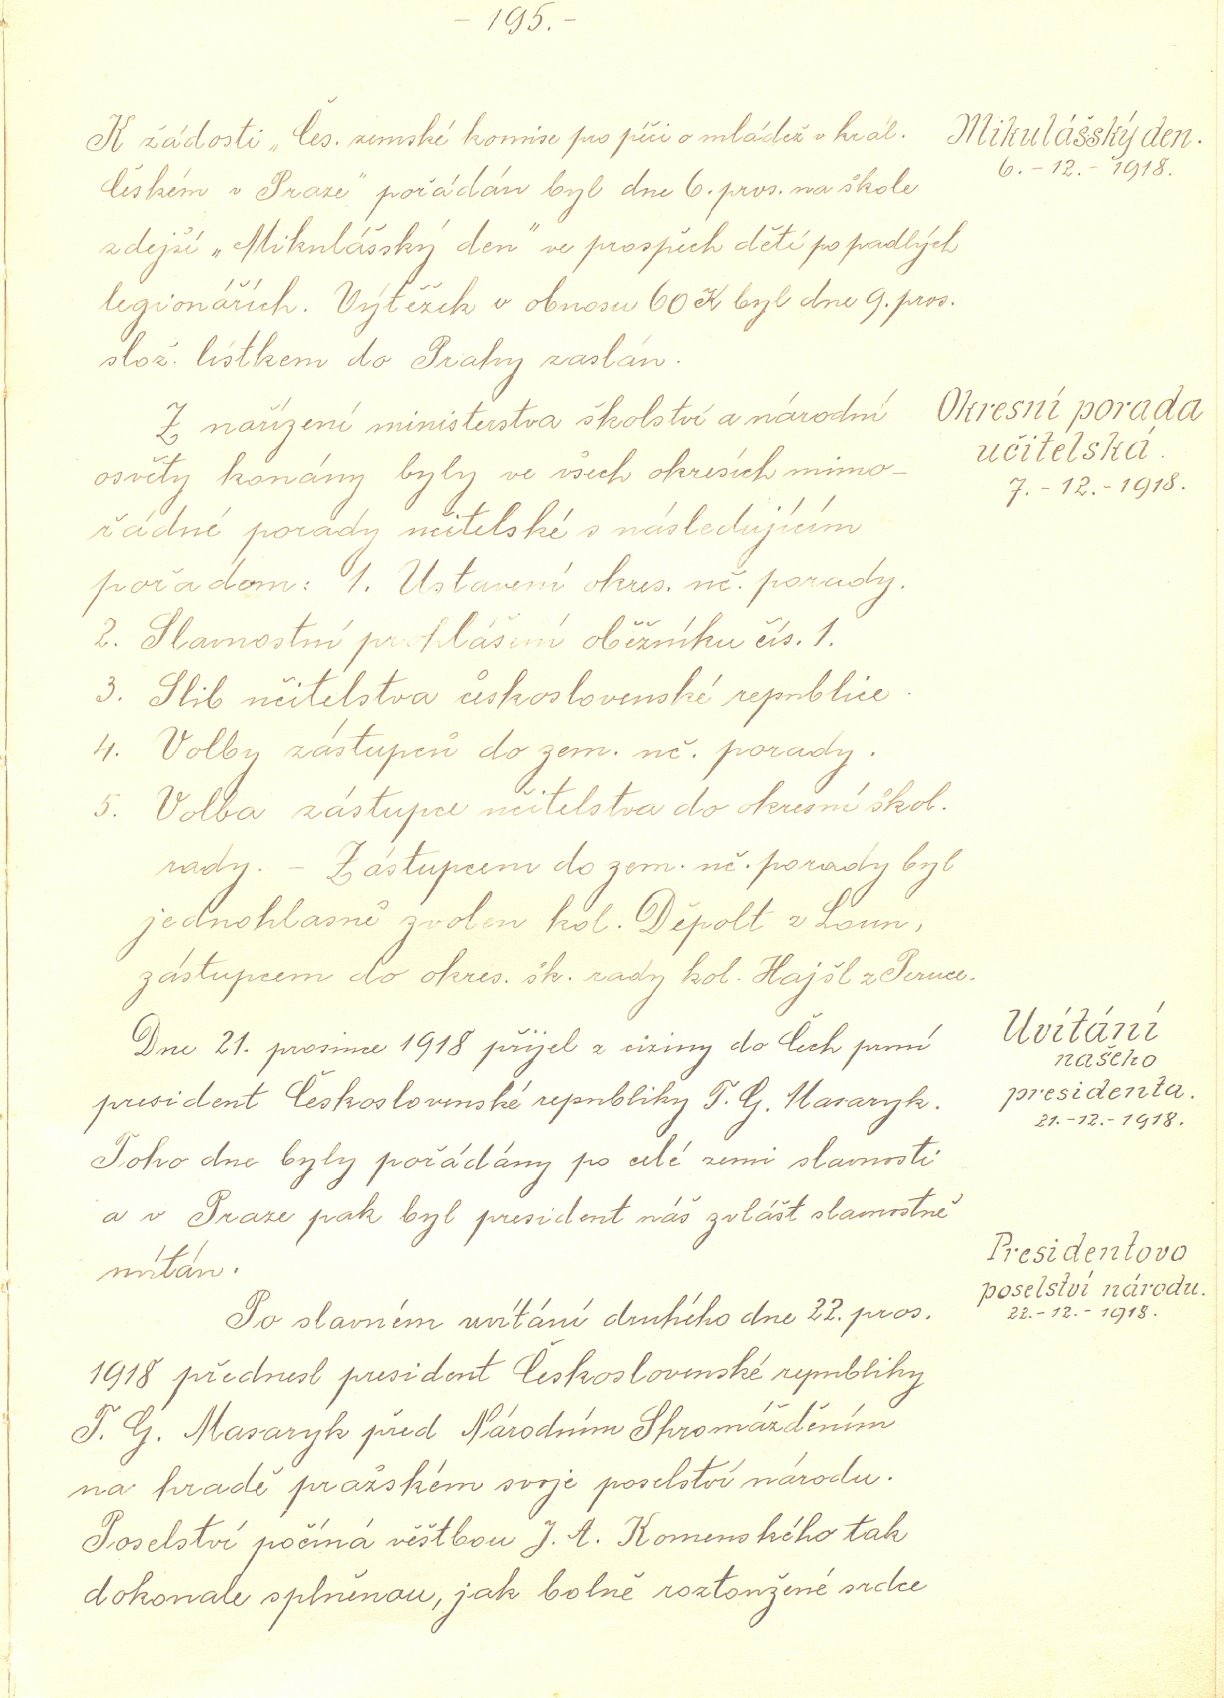 – 195. –
K žádosti „Čes. zemské komise pro péči o mládež v král.
Českém v Praze" pořádán byl dne 6. pros. na škole
zdejší „Mikulášský den" ve prospěch dětí po padlých
legionářích. Výtěžek v obnosu 60 K byl dne 9. pros.
slož. lístkem do Prahy zaslán.
Mikulášský den.
6. – 12. – 1918.
Z nařízení ministerstva školství a národní
osvěty konány byly ve všech okresích mimo-
řádné porady učitelské s následujícím
pořadem: 1. Ustavení okres. uč. porady.
2. Slavnostní prohlášení oběžníku čís. 1.
3. Slib učitelstva československé republice.
4. Volby zástupců do zem. uč. porady.
5. Volba zástupce učitelstva do okresní škol.
rady. – Zástupcem do zem. uč. porady byl
jednohlasně zvolen kol. Děpolt z Loun,
zástupcem do okres. šk. rady kol. Hajšl z Peruce.
Okresní porada
učitelská.
7. – 12. – 1918.
Dne 21. prosince 1918 přijel z ciziny do Čech první
president Československé republiky T. G. Masaryk.
Toho dne byly pořádány po celé zemi slavnosti
a v Praze pak byl president náš zvlášt slavnostně
uvítán.
Uvítání
našeho
presidenta.
21. – 12. – 1918.
Po slavném uvítání druhého dne 22. pros.
1918 přednesl president Československé republiky
T. G. Masaryk před Národním Shromážděním
na hradě pražském svoje poselství národu.
Poselství počíná věštbou J. A. Komenského tak
dokonale splněnou, jak bolně roztoužené srdce
Presidentovo
poselství národu.
22. – 12. – 1918.